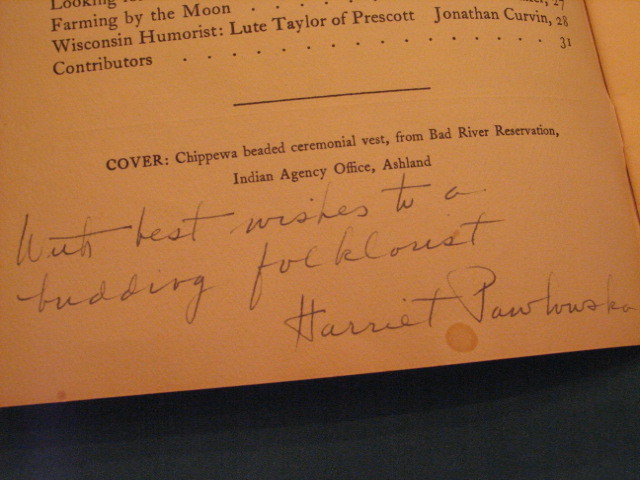 Looking
27
Farming by the Moon . . . . . .
Wisconsin Humorist: Lute Taylor of Prescott Jonathan Curvin, 28
Contributors . . . . . . . . . . . . . . . . 31
COVER: Chippewa beaded ceremonial vest, from Bad River Reservation,
Indian Agency Office, Ashland
With best wishes to a
budding folklorist
Harriet Pawlowska